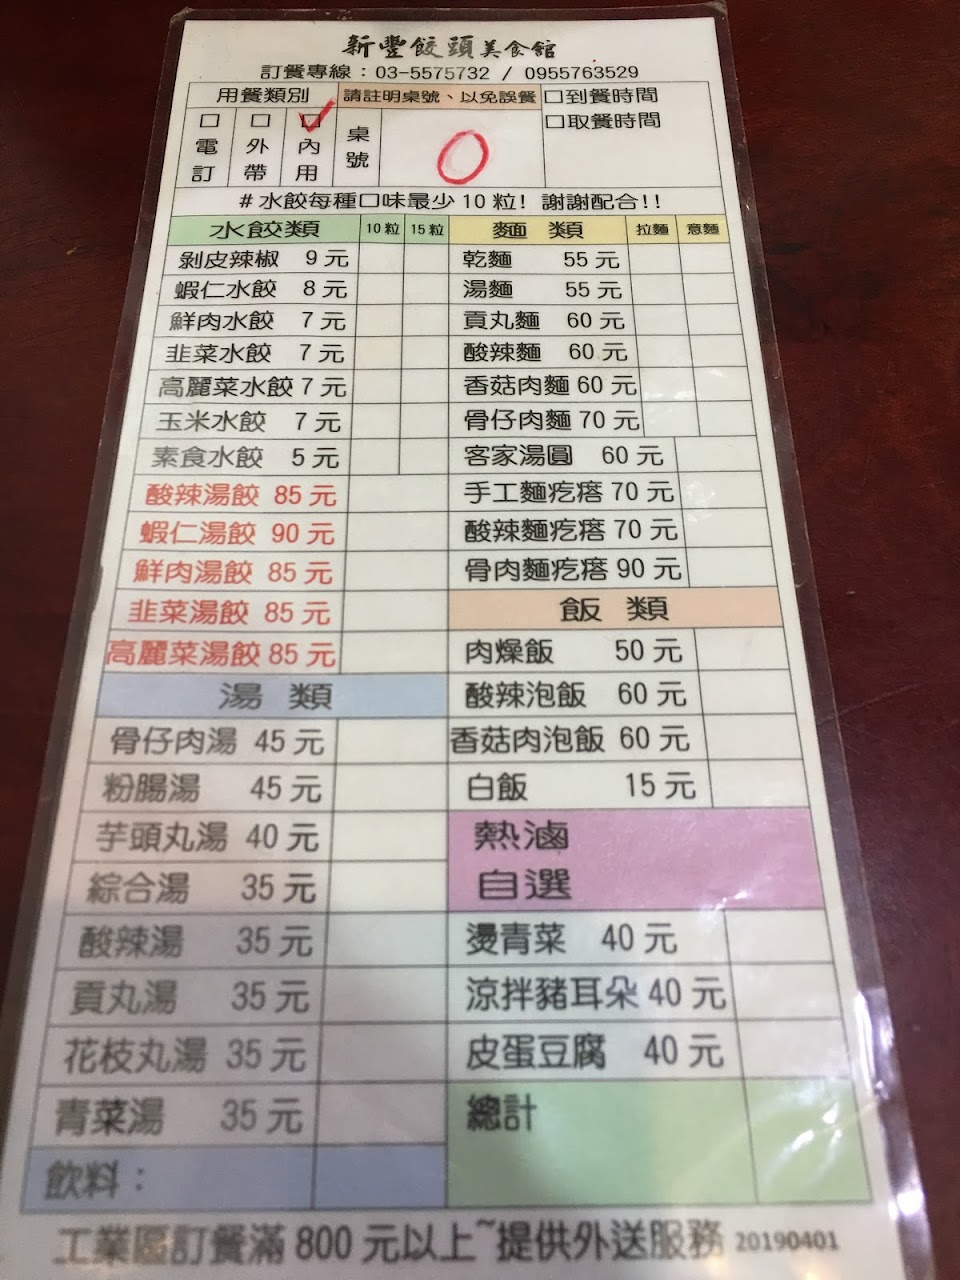 新豐餃頭美食館
訂餐專線：03-5575732 / 0955763529
用餐類別
請註明桌號、以免誤餐
□到餐時間
□取餐時間
□電訂
□外帶
□內用
桌號
0
#水餃每種口味最少10粒! 謝謝配合!!
水餃類 10粒 15粒
剝皮辣椒 9元
蝦仁水餃 8元
鮮肉水餃 7元
韭菜水餃 7元
高麗菜水餃 7元
玉米水餃 7元
素食水餃 5元
酸辣湯餃 85元
蝦仁湯餃 90元
鮮肉湯餃 85元
韭菜湯餃 85元
高麗菜湯餃 85元
湯類
骨仔肉湯 45元
粉腸湯 45元
芋頭丸湯 40元
綜合湯 35元
酸辣湯 35元
貢丸湯 35元
花枝丸湯 35元
青菜湯 35元
飲料：
麵類 拉麵 意麵
乾麵 55元
湯麵 55元
貢丸麵 60元
酸辣麵 60元
香菇肉麵 60元
骨仔肉麵 70元
客家湯圓 60元
手工麵疙瘩 70元
酸辣麵疙瘩 70元
骨肉麵疙瘩 90元
飯類
肉燥飯 50元
酸辣泡飯 60元
香菇肉泡飯 60元
白飯 15元
熱滷
自選
燙青菜 40元
涼拌豬耳朵 40元
皮蛋豆腐 40元
總計
工業區訂餐滿800元以上~提供外送服務 20190401